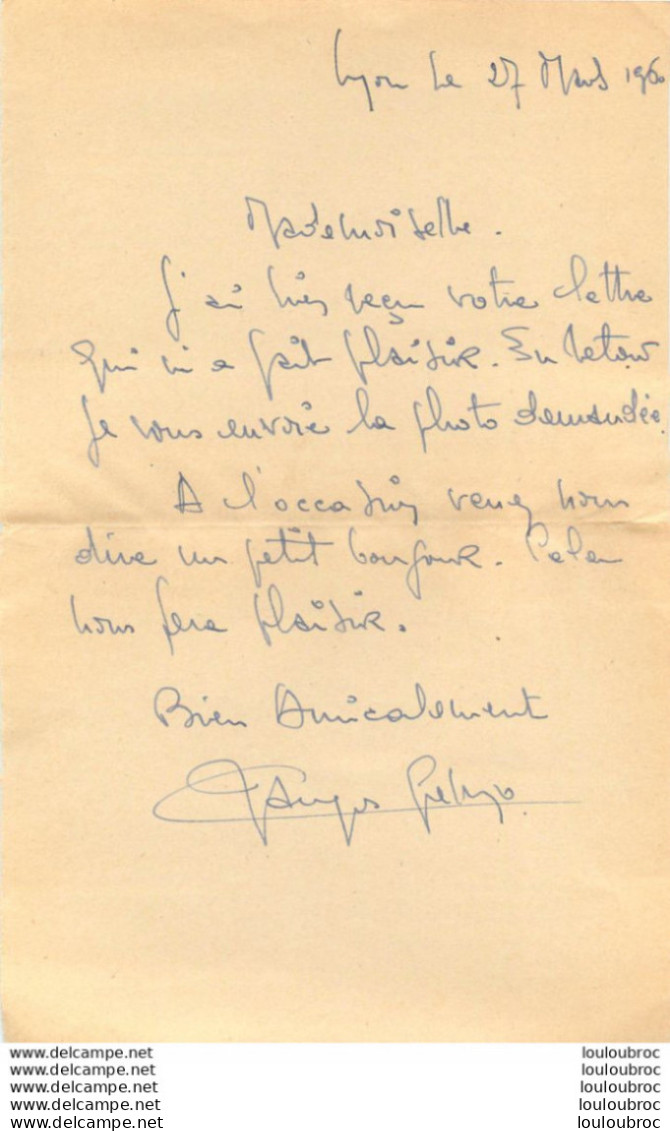 Lyon le 27 Mars 1960
Mademoiselle.
J'ai bien reçu votre lettre
qui m'a fait plaisir. En retour
je vous envoie la photo demandée.
A l'occasion venez nous
dire un petit bonjour. Cela
nous fera plaisir.
Bien Amicalement
www.delcampe.net louloubroc
www.delcampe.net louloubroc
www.delcampe.net louloubroc
www.delcampe.net louloubroc
www.delcampe.net louloubroc